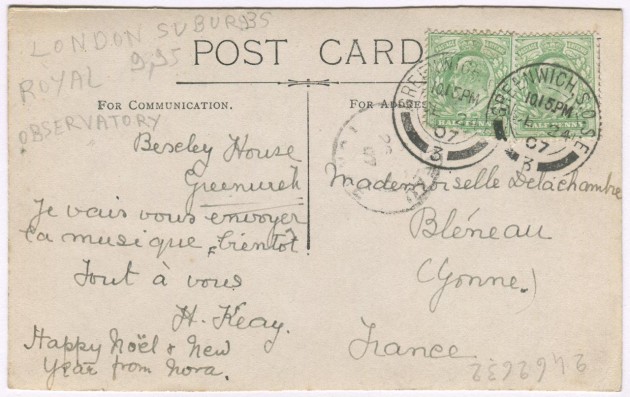 LONDON SUBURBS
9,95
ROYAL
OBSERVATORY
POST CARD
FOR COMMUNICATION.
FOR
HALFPENNY
HALFPENNY
GREENWICH
10.15 PM
24
07
3
GREENWICH.S.O.S.E.
10.15 PM
24
07
3
House
Greenwich
Je vais vous envoyer
la musique bientôt
Tout à vous
H. Keay.
Happy Noël & New
Year from Nora.
Mademoiselle Delachambre
Bléneau
(Yonne.)
France